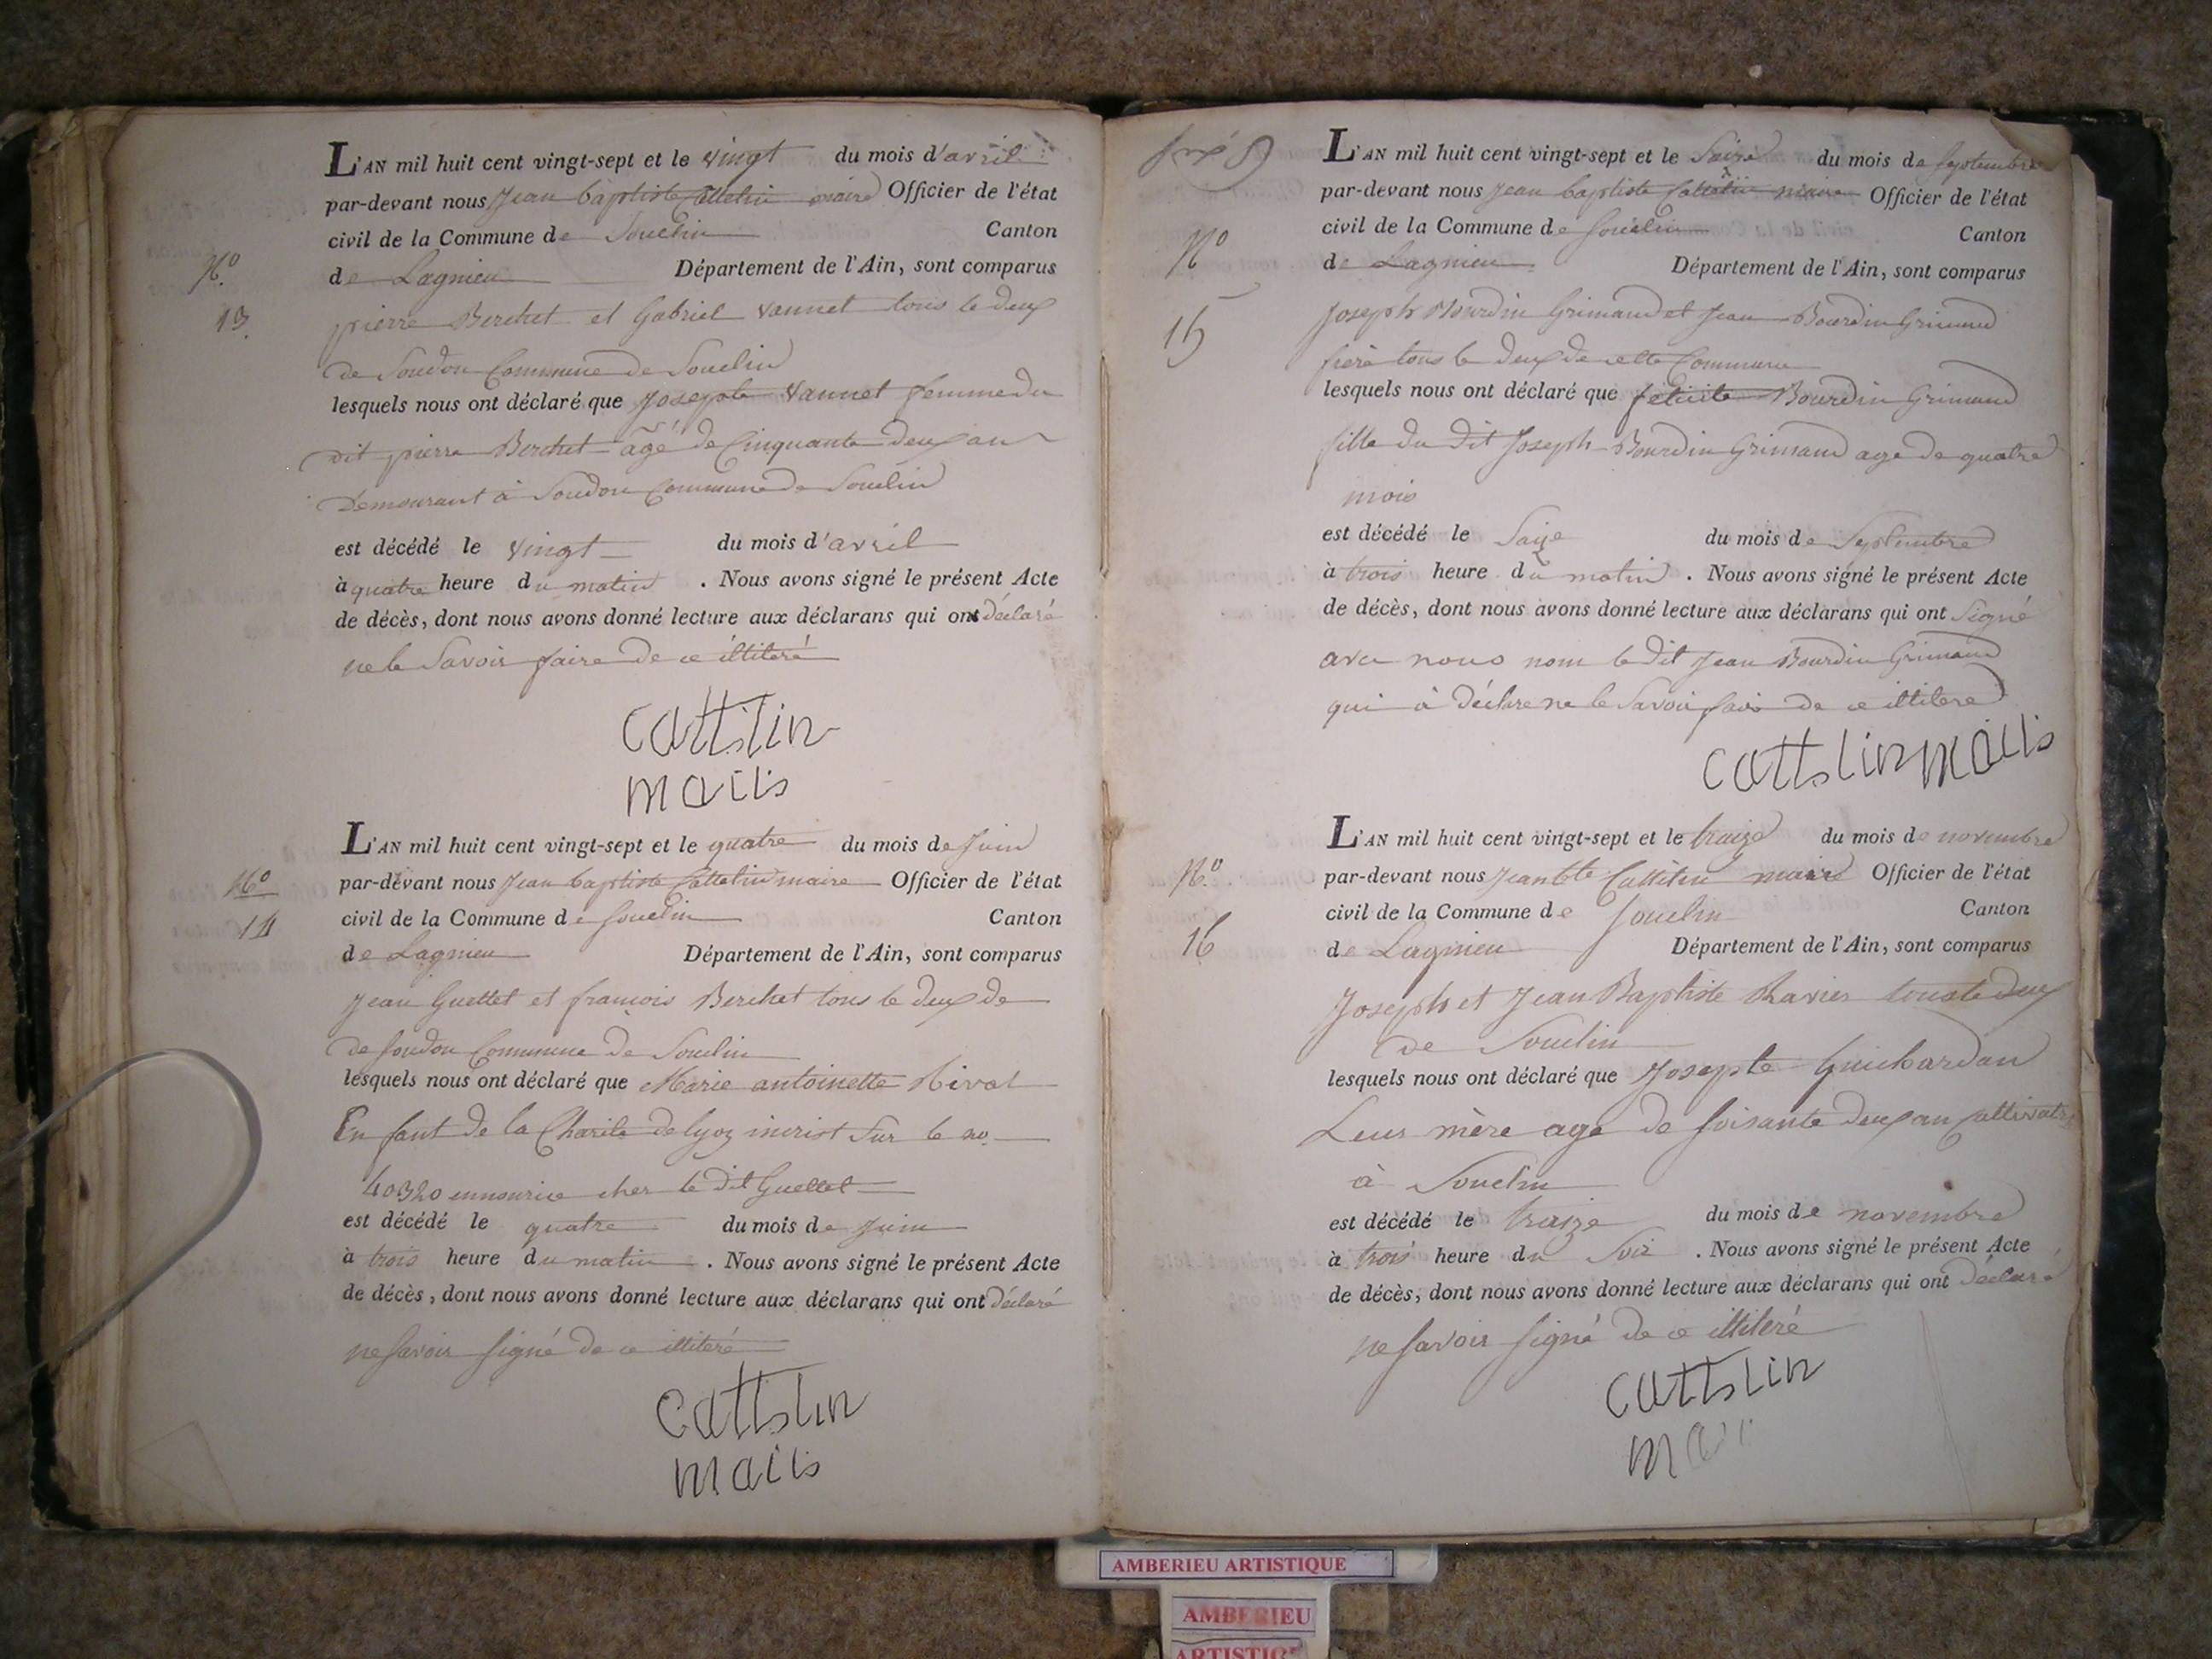 L'AN mil huit cent vingt-sept et le vingt du mois d'avril
par-devant nous Jean baptiste Cattelin maire Officier de l'état
civil de la Commune de Souclin Canton
No. de Lagnieu Département de l'Ain, sont comparus
13. pierre Berchet et Gabriel vannet tous le deux
de Soudon Commune de Souclin
lesquels nous ont déclaré que Josephte vannet femme du
dit pierre Berchet âgé de Cinquante deux an
Demeurant à Soudon Commune de Souclin
est décédé le vingt du mois d'avril
à quatre heure du matin . Nous avons signé le présent Acte
de décès, dont nous avons donné lecture aux déclarans qui ont déclaré
ne le Savoir faire de ce illiteré
cattelin
maire
L'AN mil huit cent vingt-sept et le quatre du mois de Juin
No par-devant nous Jean baptiste Cattelin maire Officier de l'état
14 civil de la Commune de Souclin Canton
de Lagnieu Département de l'Ain, sont comparus
Jean Guettet et francois Berchet tous le deux de
de Soudon Commune de Souclin
lesquels nous ont déclaré que Marie antoinette
En fant de la Charité de lyon Sur le no.
40320 cher le dit Guettet
est décédé le quatre du mois de Juin
à trois heure du matin . Nous avons signé le présent Acte
de décès, dont nous avons donné lecture aux déclarans qui ont déclaré
ne Savoir Signé de ce illiteré
cattelin
maire
L'AN mil huit cent vingt-sept et le Saize du mois de Septembre
par-devant nous Jean baptiste Cattelin maire Officier de l'état
No civil de la Commune de Souclin Canton
de Lagnieu Département de l'Ain, sont comparus
15 Joseph Bourdin Grimaud et Jean Bourdin Grimaud
frere tous le deux de cette Commune
lesquels nous ont déclaré que felicite Bourdin Grimaud
fille du dit Joseph Bourdin Grimaud age de quatre
mois
est décédé le Saize du mois de Septembre
à trois heure du matin . Nous avons signé le présent Acte
de décès, dont nous avons donné lecture aux déclarans qui ont Signé
avec nous nom le dit Jean Bourdin Grimaud
qui à déclare ne le Savoir faire de ce illiteré
cattelin maire
L'AN mil huit cent vingt-sept et le traize du mois de novembre
No. par-devant nous Jean bte Cattelin maire Officier de l'état
civil de la Commune de Souclin Canton
16 de Lagnieu Département de l'Ain, sont comparus
Joseph et Jean Baptiste Ravier tous le deux
de Souclin
lesquels nous ont déclaré que Josephte Guichardan
Leur mère age de soisante deux an
à Souclin
est décédé le traize du mois de novembre
à trois heure du Soir . Nous avons signé le présent Acte
de décès, dont nous avons donné lecture aux déclarans qui ont déclaré
ne Savoir Signé de ce illiteré
cattelin
AMBERIEU ARTISTIQUE
AMBERIEU
ARTISTIQUE